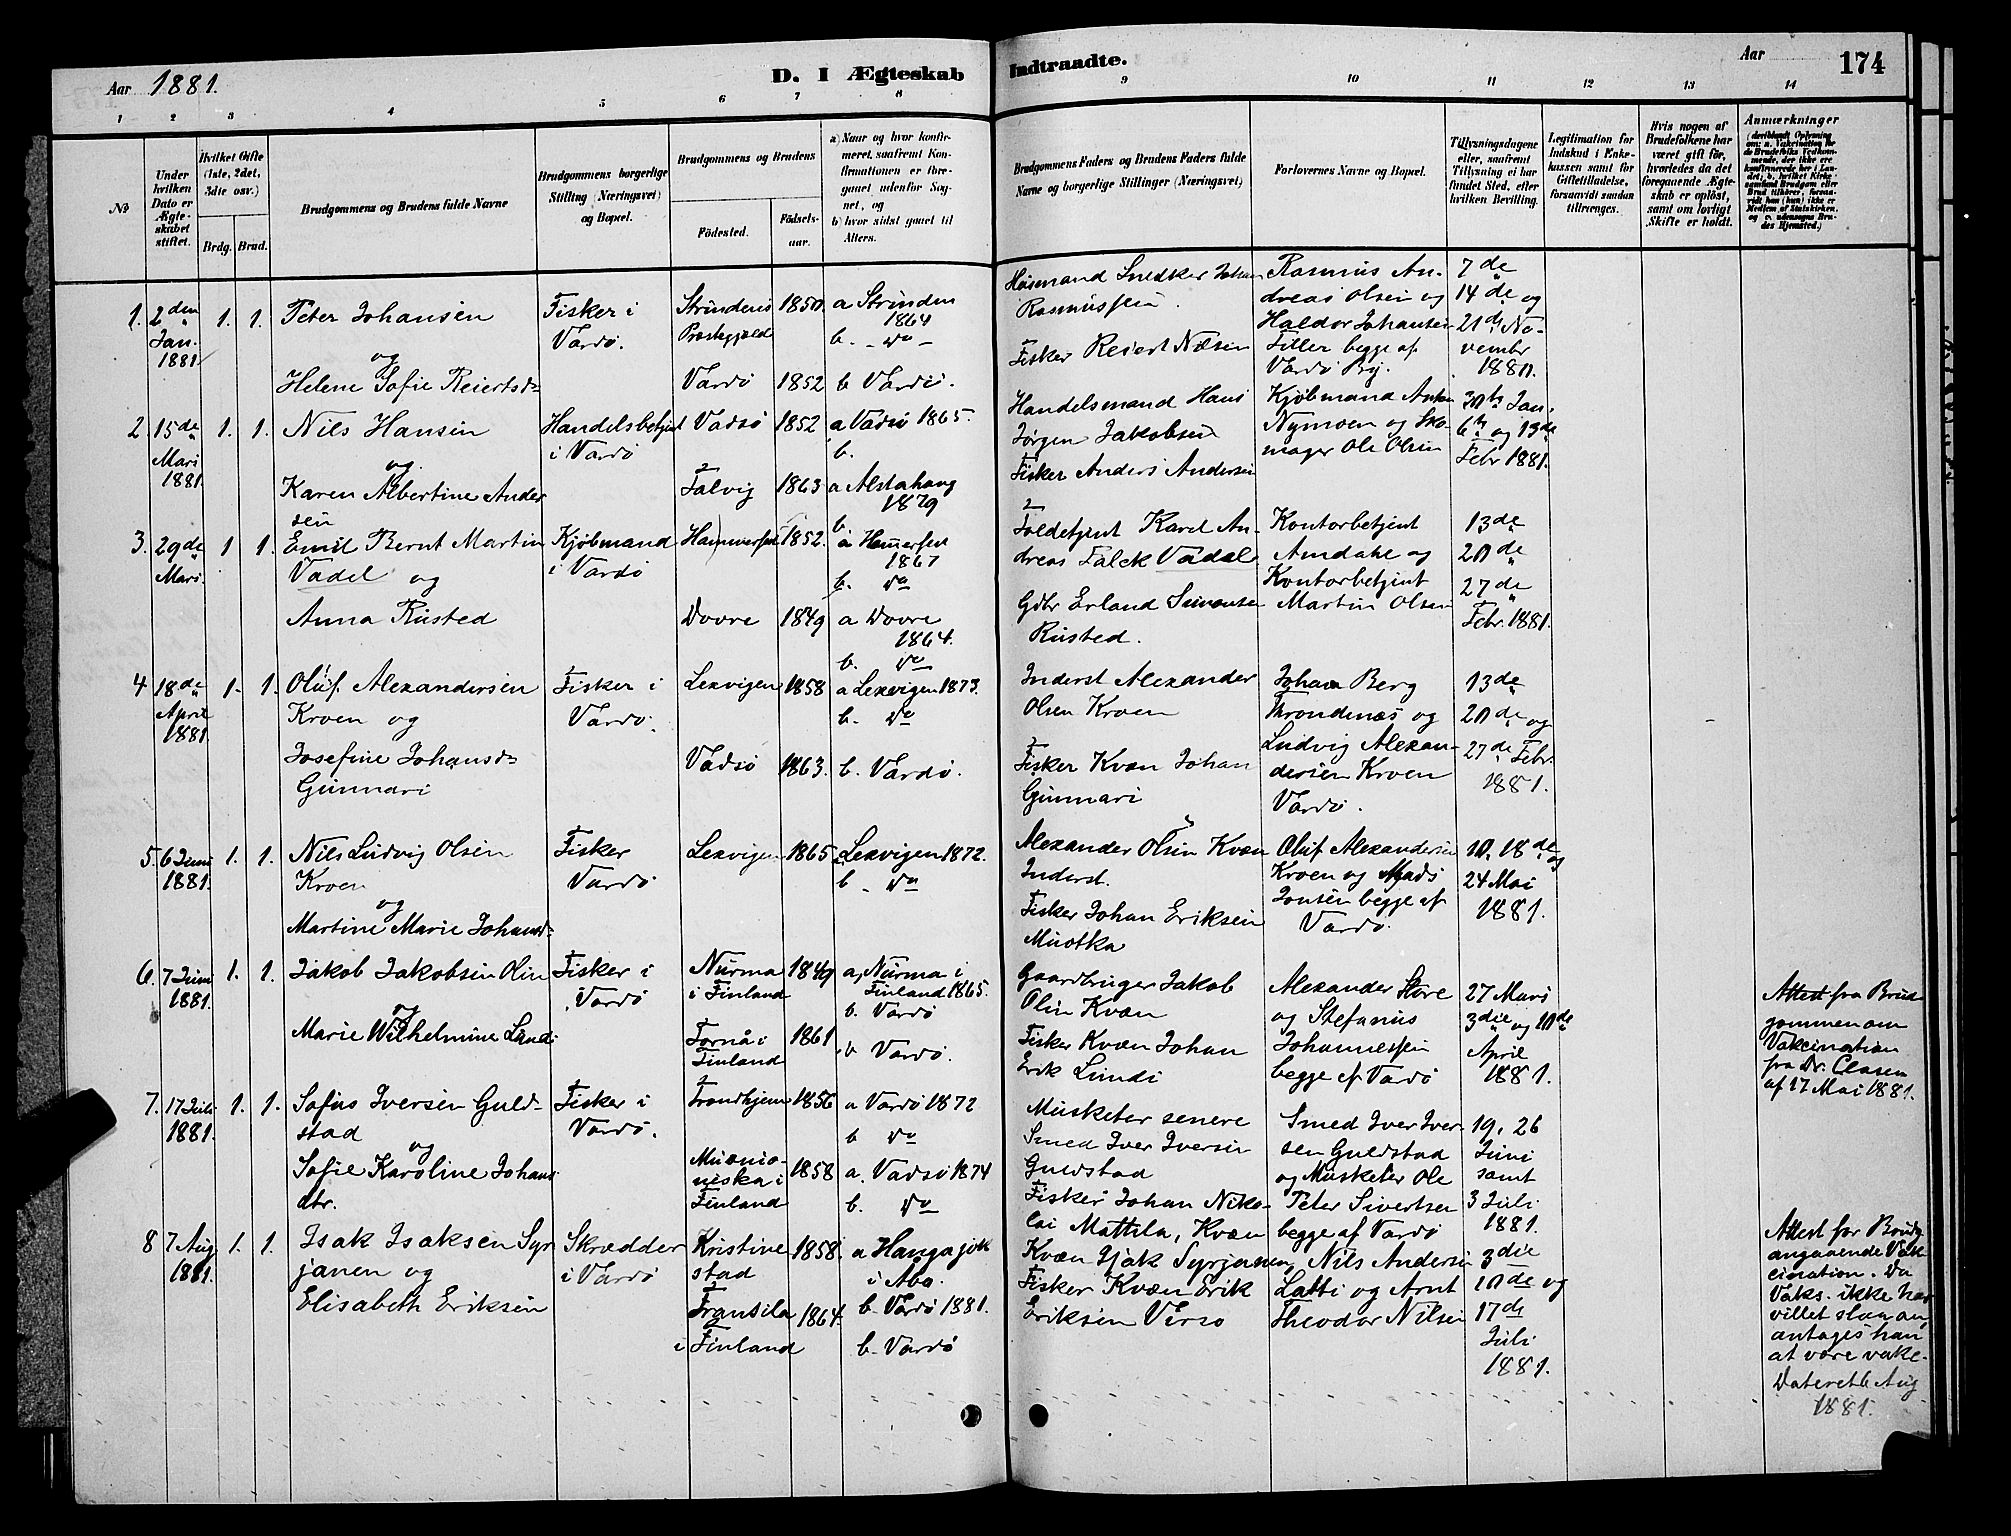 Aar 1881.
D. I Ægteskab Indtraadte.
Aar
174
1 2 3 4 5 6 7 8 9 10 11 12 13 14
No
Under hvilken Dato er Ægteskabet stiftet.
Hvilket Gifte (1ste, 2det, 3die osv.)
Brdg. Brud.
Brudgommens og Brudens fulde Navne
Brudgommens borgerlige Stilling (Næringsvei) og Bopæl.
Brudgommens og Brudens
Födested.
Födselsaar.
a) Naar og hvor konfirmeret, saafremt Konfirmationen er foregaaet udenfor Sognet, og
b) hvor sidst gaaet til Alters.
Brudgommens Faders og Brudens Faders fulde Navne og borgerlige Stillinger (Næringsvei)
Forlovernes Navne og Bopæl.
Tillysningsdagene eller, saafremt Tillysning ei har fundet Sted, efter hvilken Bevilling.
Legitimation for Indskud i Enkekassen samt for Giftetilladelse, forsaavidt saadan tiltrænges.
Hvis nogen af Brudefolkene har været gift för, hvorledes da det foregaaende Ægteskab er oplöst, samt om lovligt Skifte er holdt.
Anmærkninger
1. 2den Jan. 1881 1. 1.
Peter Johansen
og
Helene Sofie Reiertsd
Fisker i
Vardö.
Strindens
Præstegjeld
1850
Vardö 1852
a Strinden
1864
b. - do -
b Vardö.
Husmand Snedker Johan
Rasmussen.
Fisker Reiert Nilsen
Rasmus An-
dreas Olsen og
Haldor Johansen
Tiller begge af
Vardö By.
7de
14de og
21de No-
vembr
1880.
2. 15de Mars 1881. 1. 1.
Nils Hansen
og
Karen Albertine Ander
sen
Handelsbetjent
i Vardö
Vadsö 1852
Talvig 1863
a Vadsö 1865.
b.
a Alstahaug
1879
b
Handelsmand Hans
Jörgen Jakobsen
Fisker Anders Andersen
Kjöbmand Anton
Nymoen og Sko-
mager Ole Olsen
30te Jan.
6te og 13de
Febr 1881.
3. 29de Mars. 1 1.
Emil Bernt Martin
Vadel og
Anna Rusted
Kjöbmand
i Vardö
Hammerfest 1852.
Dovre 1849
a Hamerfest
1867
b. do
a Dovre
1864.
b. do
Toldetjent Karel An-
dreas Falck Vadel
Gdbr Erland Simensen
Rusted.
Kontorbetjent
Amdahl og
Kontorbetjent
Martin Olsen
13de
20de
27de
Febr. 1881.
4 18de April 1881 1. 1.
Oluf Alexandersen
Kroen og
Josefine Johansd
Gunnari
Fisker i
Vardö.
Lexvigen 1858
Vadsö 1863.
a Lexvigen 1873.
b. do
b. Vardö.
Inderst Alexander
Olsen Kroen
Fisker Kvæn Johan
Gunnari
Johan Berg
Throndenæs og
Ludvig Alexan-
dersen Kroen
Vardö.
13de
20de og
27de Febr.
1881.
5. 6 Juni 1881. 1. 1.
Nils Ludvig Olsen
Kroen
og
Martine Marie Johansd
Fisker
Vardö
Lexvigen 1865
a Lexvigen 1872.
b - do
Alexander Olsen Kvæn
Inderst.
Fisker Johan Eriksen
Muotka
Oluf Alexandersen
Kroen og Mads
Jonsen begge af
Vardö.
10, 18de og
24 Mai
1881.
6. 7 Juni 1881. 1. 1.
Jakob Jakobsen Olin
og
Marie Wilhelmine Lundi
Fisker i
Vardö
Nurma
i Finland
1849
Tornå i
Finland
1861
a, Nurma i
Finland 1865.
b. Vardö
b Vardö.
Gaardbruger Jakob
Olin Kvæn
Fisker Kvæn Johan
Erik Lundi
Alexander Store
og Stefanus
Johannessen
begge af Vardö
27 Mars
3die og 10de
April
1881.
Attest fra Brud
gommen om
Vakcination
fra Dr. Clasen
af 17 Mai 1881.
7. 17 Juli 1881. 1. 1.
Sofus Iversen Guld-
stad
og
Sofie Karoline Johans
dtr.
Fisker i
Vardö.
Trondhjem 1856
Muonio-
niska i
Finland
1858
a Vardö 1872
b do
a. Vadsö 1874
b. do
Musketer senere
Smed Iver Iversen
Guldstad
Fisker Johan Niko-
lai Mattila, Kvæn
Smed Iver Iver-
sen Guldstad
og Musketer Ole
Peter Sivertsen
begge af Vardö
19, 26
Juni
samt
3 Juli
1881.
8 7 Aug 1881. 1. 1.
Isak Isaksen Syr
janen og
Elisabeth Eriksen
Skrædder
i Vardö
Kristine
stad
1858.
Fransila
i Finland
1864.
a Hangajok
i Åbo.
b. Vardö 1881.
b. Vardö
Kvæn Isak Syrjanen,
Fisker Kvæn Erik
Eriksen Verso
Nils Andersen
Latti og Arnt
Theodor Nilsen
3die
10de og
17de
Juli
1881.
Attest for Brudg
angaaende Vak
cination. Da
Vaks. ikke har
villet slaa an,
antages han
at være vakc.
Dateret 6 Aug
1881.